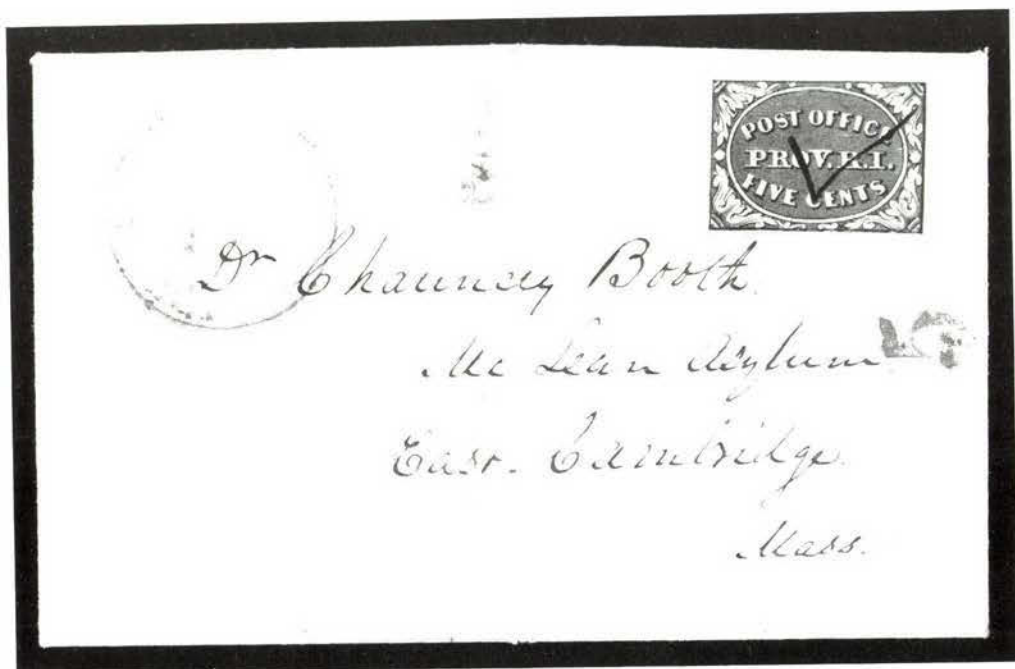 POST OFFICE
PROV. R.I.
FIVE CENTS
Dr Chauncey Booth
Mc Lean Asylum
East. Cambridge.
Mass.